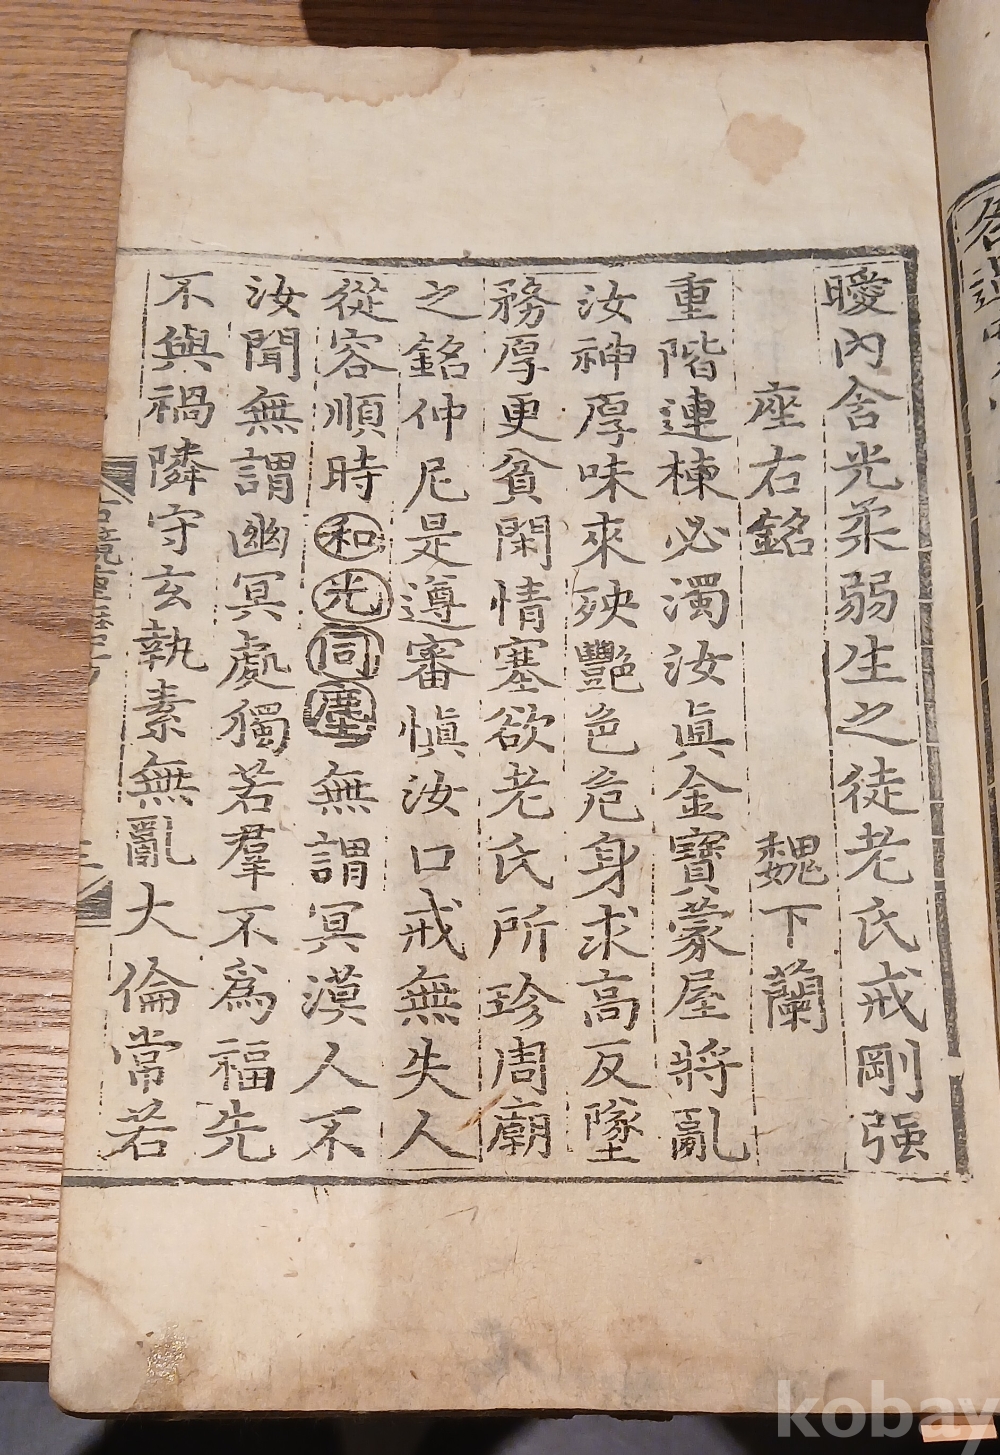 曖內含光柔弱生之徒老氏戒剛强
座右銘 魏下蘭
重階連棟必濁汝眞金寶蒙屋將亂
汝神厚味來殃艷色危身求高反墜
務厚更貧閑情塞欲老氏所珍周廟
之銘仲尼是遵審愼汝口戒無失人
從容順時和光同塵無謂冥漠人不
汝聞無謂幽冥處獨若羣不爲福先
不與禍隣守玄執素無亂大倫常若
kobay